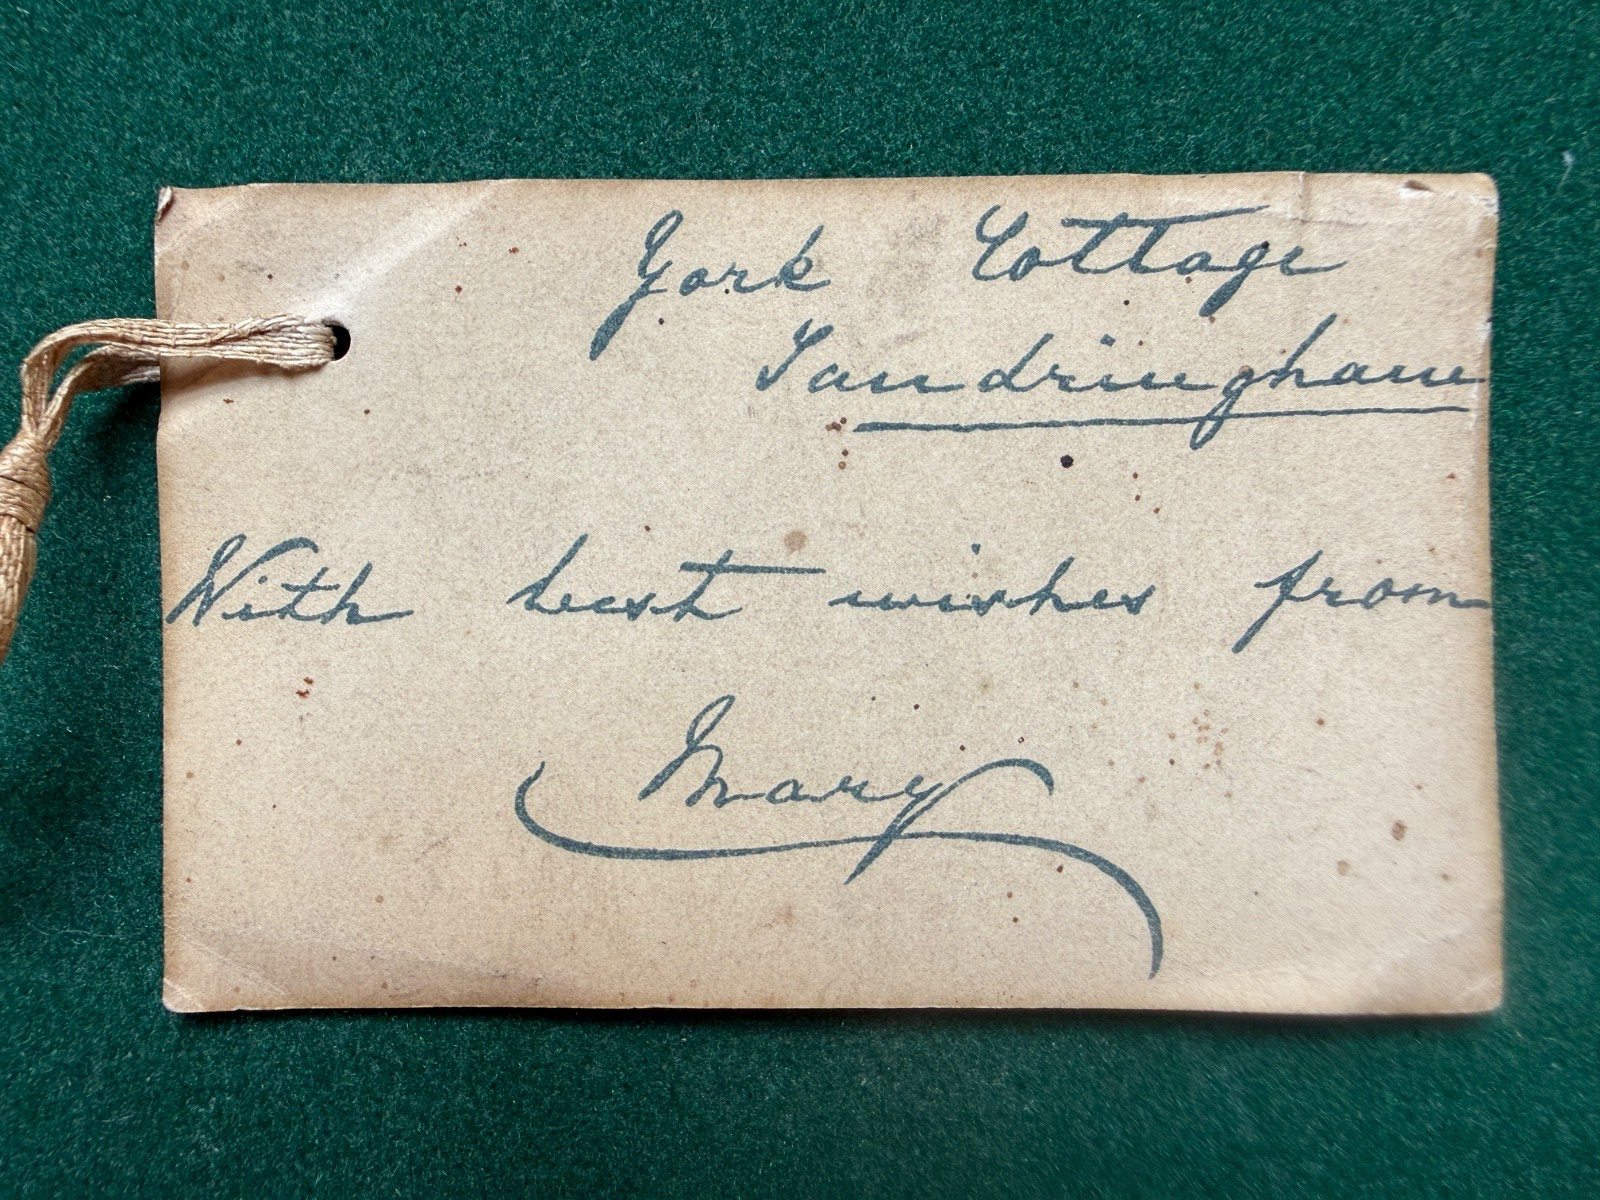 York Cottage
Sandringham
With best wishes from
Mary